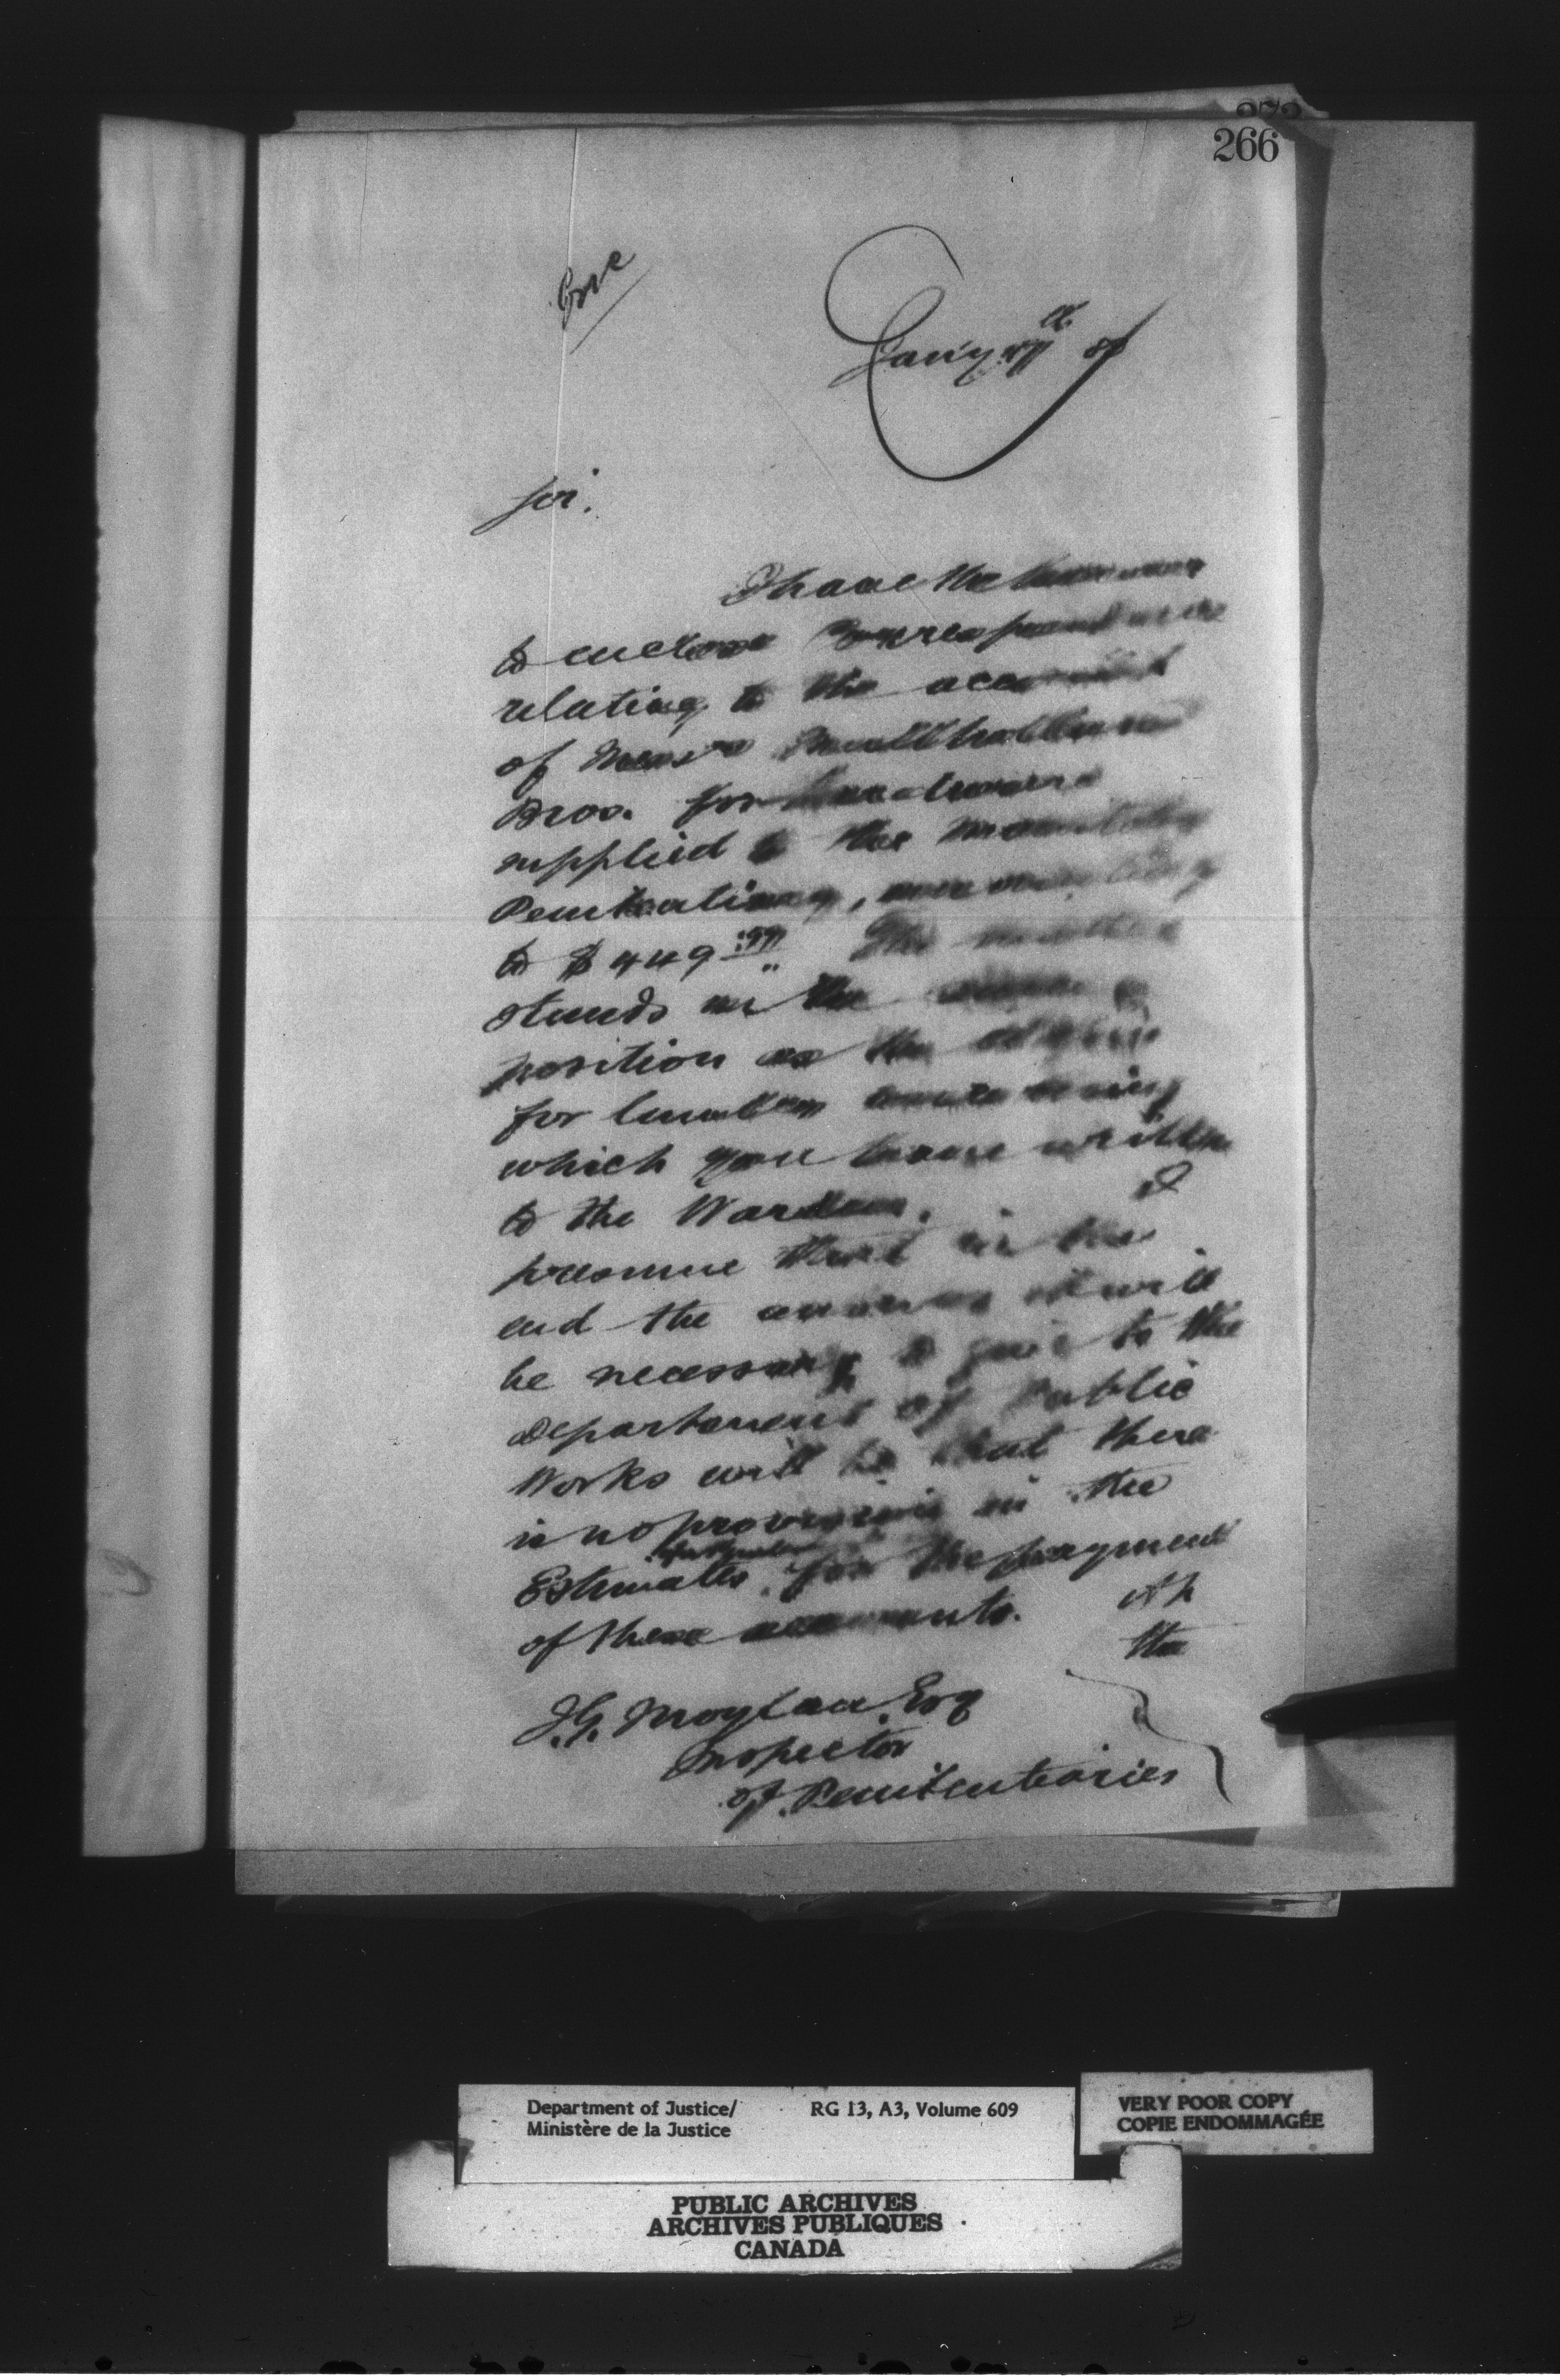 266
Jan'y
Sir.
I have the honour
to enclose correspondence
relating to the account
of Mess'rs Mulholland
Bros. for hardware
supplied to the Manitoba
Penitentiary, amounting
to $449. The matter
stands in the same
position as the
for lumber concerning
which you have written
to the Warden. I
presume that in the
end the answer it will
be necessary to give to the
Department of Public
Works will be that there
is no provision in the
Estimates for the payment
of these accounts. At
the
J.G. Moylan, Esq
Inspector
of Penitentiaries
Department of Justice/
Ministère de la Justice
RG 13, A3, Volume 609
VERY POOR COPY
COPIE ENDOMMAGÉE
PUBLIC ARCHIVES
ARCHIVES PUBLIQUES
CANADA